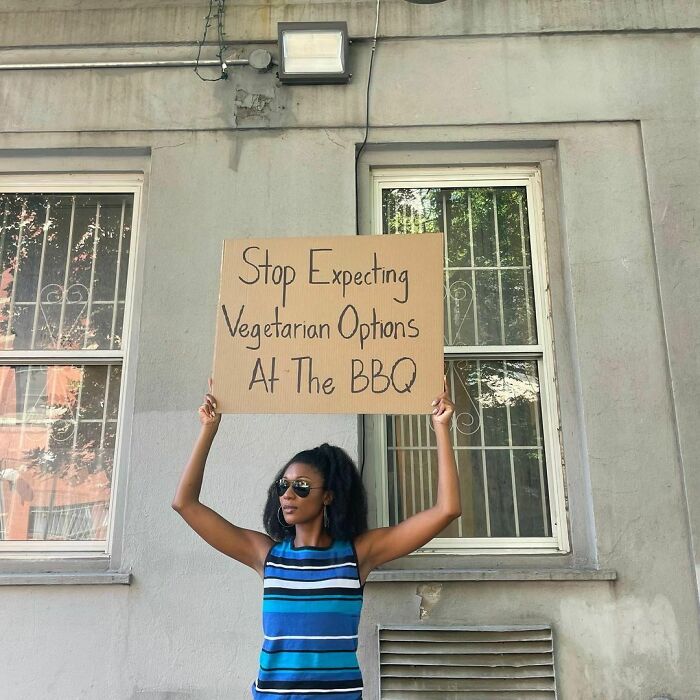 Stop Expecting
Vegetarian Options
At The BBQ